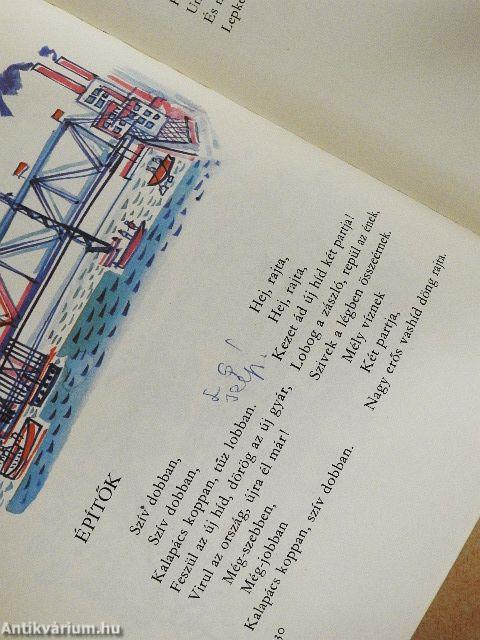 ÉPÍTŐK
Szív dobban,
Szív dobban,
Kalapács koppan, tűz lobban.
Feszül az új híd, dörög az új gyár,
Virul az ország, újra él már!
Még-szebben,
Még-jobban
Kalapács koppan, szív dobban.
Hej, rajta,
Hej, rajta,
Kezet ád új híd két partja!
Lobog a zászló, repül az ének,
Szívek a légben összeérnek.
Mély víznek
Két partja,
Nagy erős vashíd döng rajta.
30
És
Lepke
Antikvárium.hu